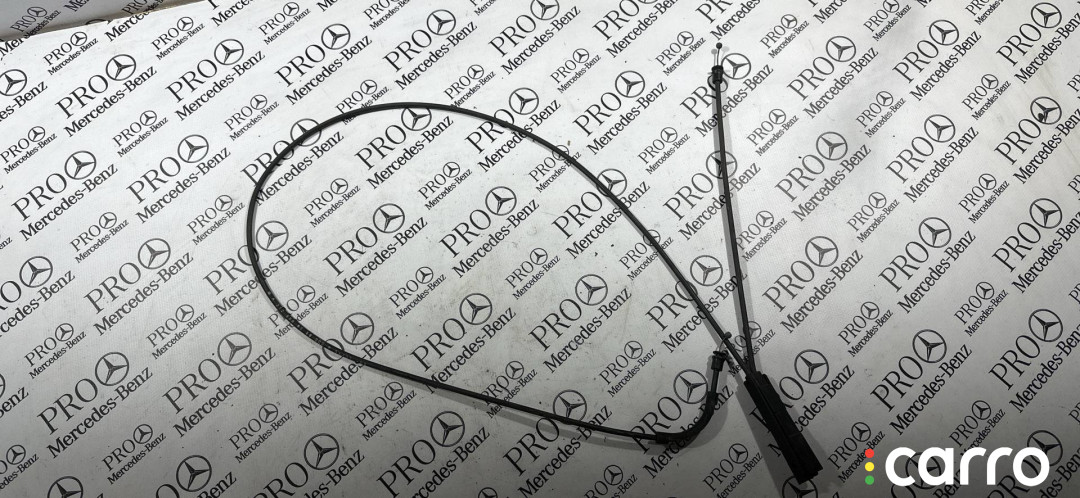 PRO
Mercedes-Benz
carro